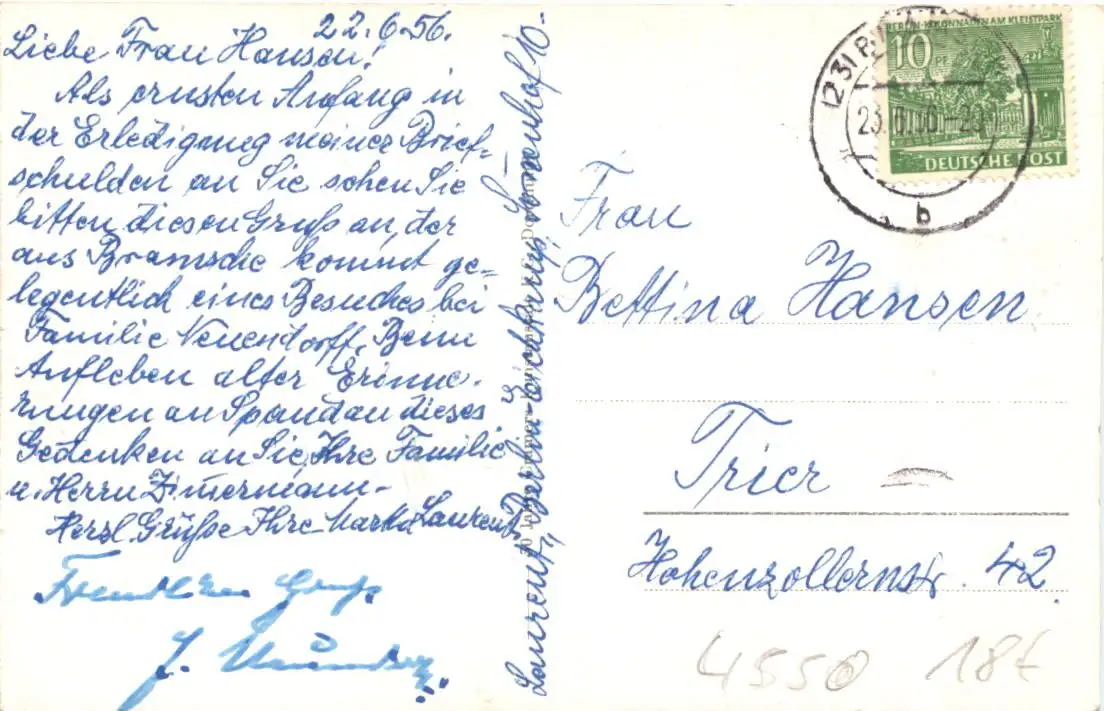 22.6.56.
Liebe Frau Hansen!
Als ernsten Anfang in
der Erledigung meiner Brief-
schulden an Sie sehen Sie
bitten diesen Gruß an, der
aus Bramsche kommt ge-
legentlich eines Besuches bei
Familie Neuendorff. Beim
Aufleben alter Erinne-
rungen an Spandau dieses
Gedenken an Sie, Ihre Familie
u. Herrn Zimermann-
Herzl. Grüße Ihre Laurent
Freundl. Gruß
Laurent, Berlin-Eichkamp, 10.
BERLIN-KOLONNADEN AM KLEISTPARK
10 PF
DEUTSCHE POST
(23)
b
Frau
Bettina Hansen
Trier
Hohenzollernstr. 42.
4550
18f